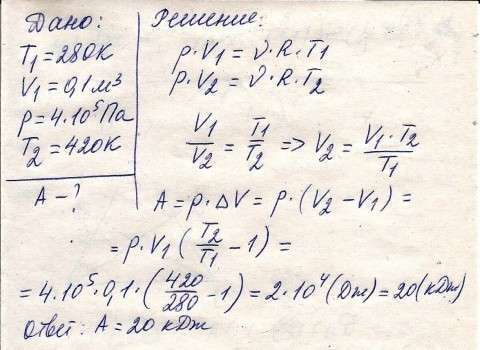 Дано:
T₁ = 280К
V₁ = 0,1 м³
p = 4·10⁵ Па
T₂ = 420К
A – ?
Решение:
p·V₁ = ν·R·T₁
p·V₂ = ν·R·T₂
V₁/V₂ = T₁/T₂ => V₂ = V₁·T₂/T₁
A = p·ΔV = p·(V₂ – V₁) =
= p·V₁(T₂/T₁ – 1) =
= 4·10⁵·0,1·(420/280 – 1) = 2·10⁴(Дж) = 20(кДж)
Ответ: A = 20 кДж